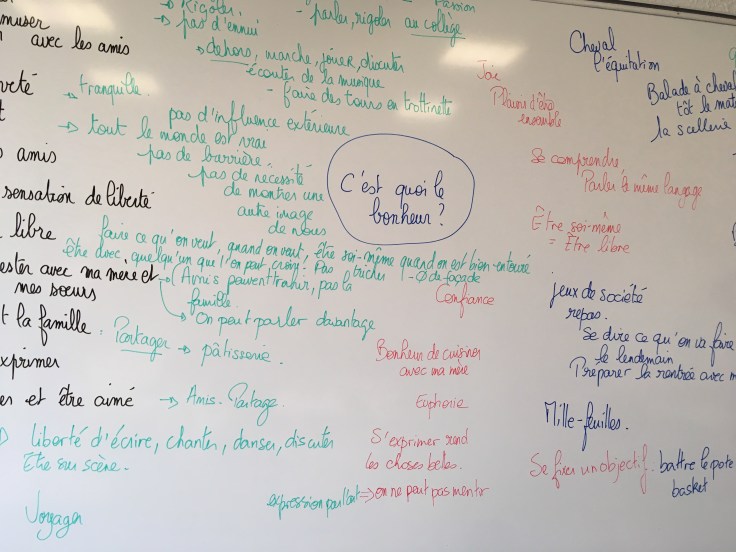 muser
avec les amis
veté
amis
sensation de liberté
libre
ester avec ma mère et
mes sœurs
t la famille :
xprimer
er et être aimé
Rigoler
-> pas d'ennui
-> dehors, marche, jouer, discuter
écouter de la musique
- faire des tours en trottinette
- parler, rigoler au collège
Passion
-> tranquille
pas d'influence extérieure
-> tout le monde est vrai
pas de barrière.
pas de nécessité
de montrer une
autre image
de nous
faire ce qu'on veut, quand on veut, être soi-même quand on est bien entouré
être avec quelqu'un que l'on peut croire. Pas tricher - Ø de façade
-> Amis peuvent trahir, pas la
famille.
-> On peut parler davantage
Partager -> pâtisserie.
-> Amis - Partage.
liberté d'écrire, chanter, danser, discuter
Être sur scène.
Voyager
C'est quoi le
bonheur ?
Joie
Plaisir d'être
ensemble
Se comprendre,
Parler le même langage
Être soi-même
= Être libre
Confiance
Bonheur de cuisiner
avec ma mère
Euphorie
S'exprimer rend
les choses belles.
expression par l'art => on ne peut pas mentir
Cheval
l'équitation
Balade à cheval
tôt le mat
la scellerie
jeux de société
repas.
Se dire ce qu'on va faire
le lendemain
Préparer la rentrée avec m
Mille-feuilles.
Se fixer un objectif. battre le pote
basket